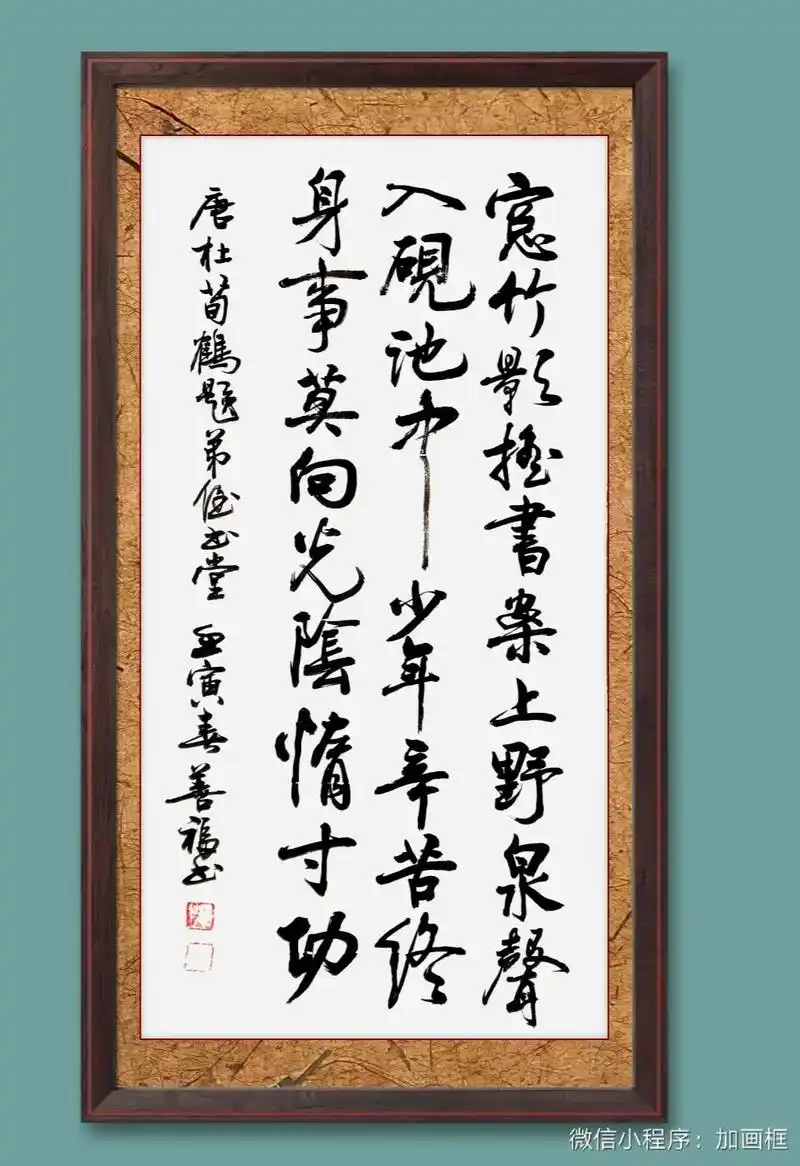 窓竹影摇書案上野泉聲
入硯池中少年辛苦終
身事莫向光陰惰寸功
唐杜荀鶴题弟侄书堂 壬寅春 善福书
微信小程序：加画框